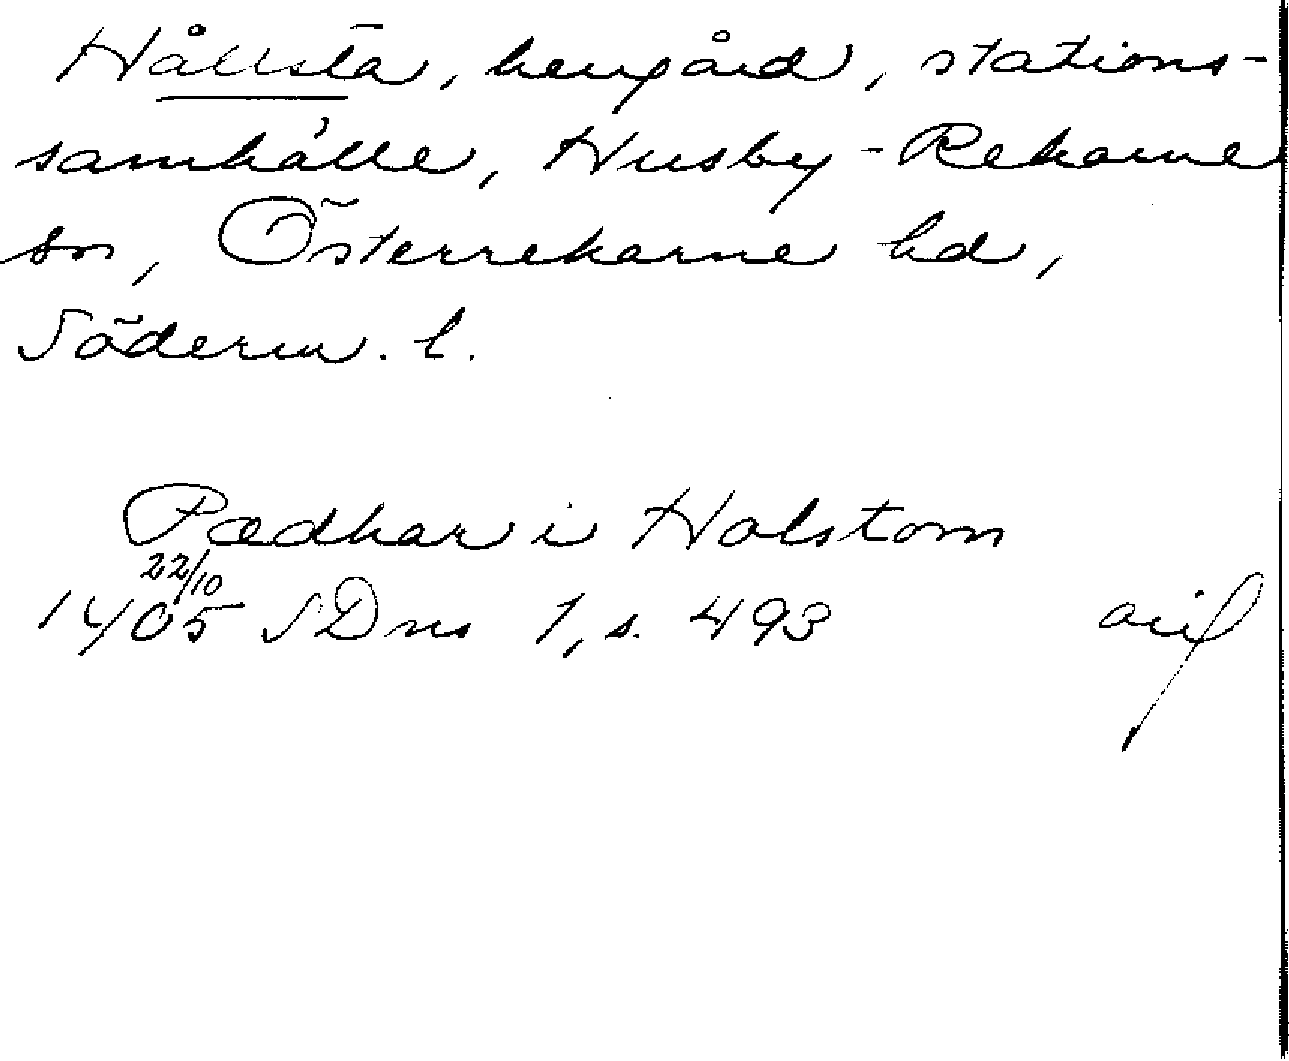 Hållsta, herrgård, stations-
samhälle, Husby-Rekarne
sn, Österrekarne hd,
Söderm. l.
Pædhar i Holstom
22/10
1405 SDns 1, s. 493 avif